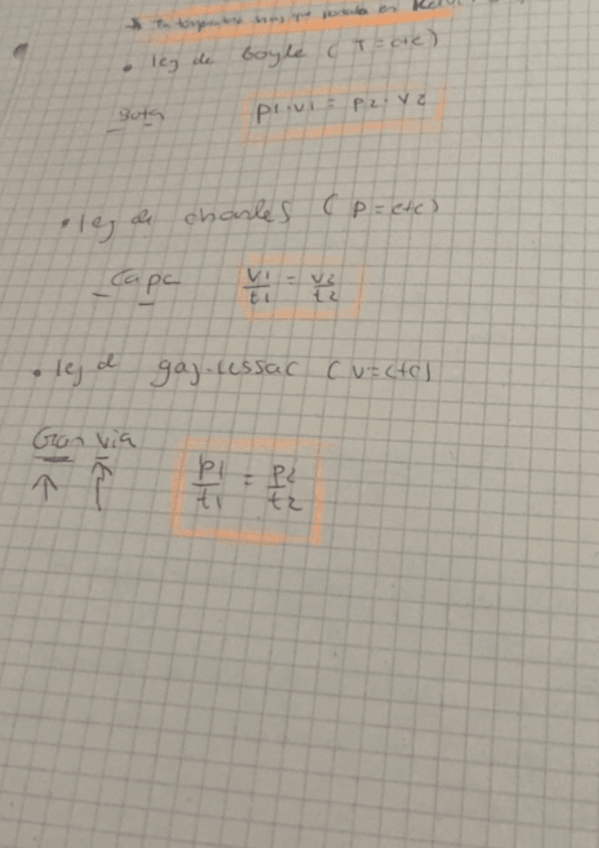 * La temperatura hay que ponerla en Kelvi
• ley de boyle ( T = ctc )
Bota p1·v1 = p2·v2
• ley de charles ( p = ctc )
Capa v1/t1 = v2/t2
• ley d gay-lussac ( v = ctc )
Gran via p1/t1 = p2/t2
↑ ↑